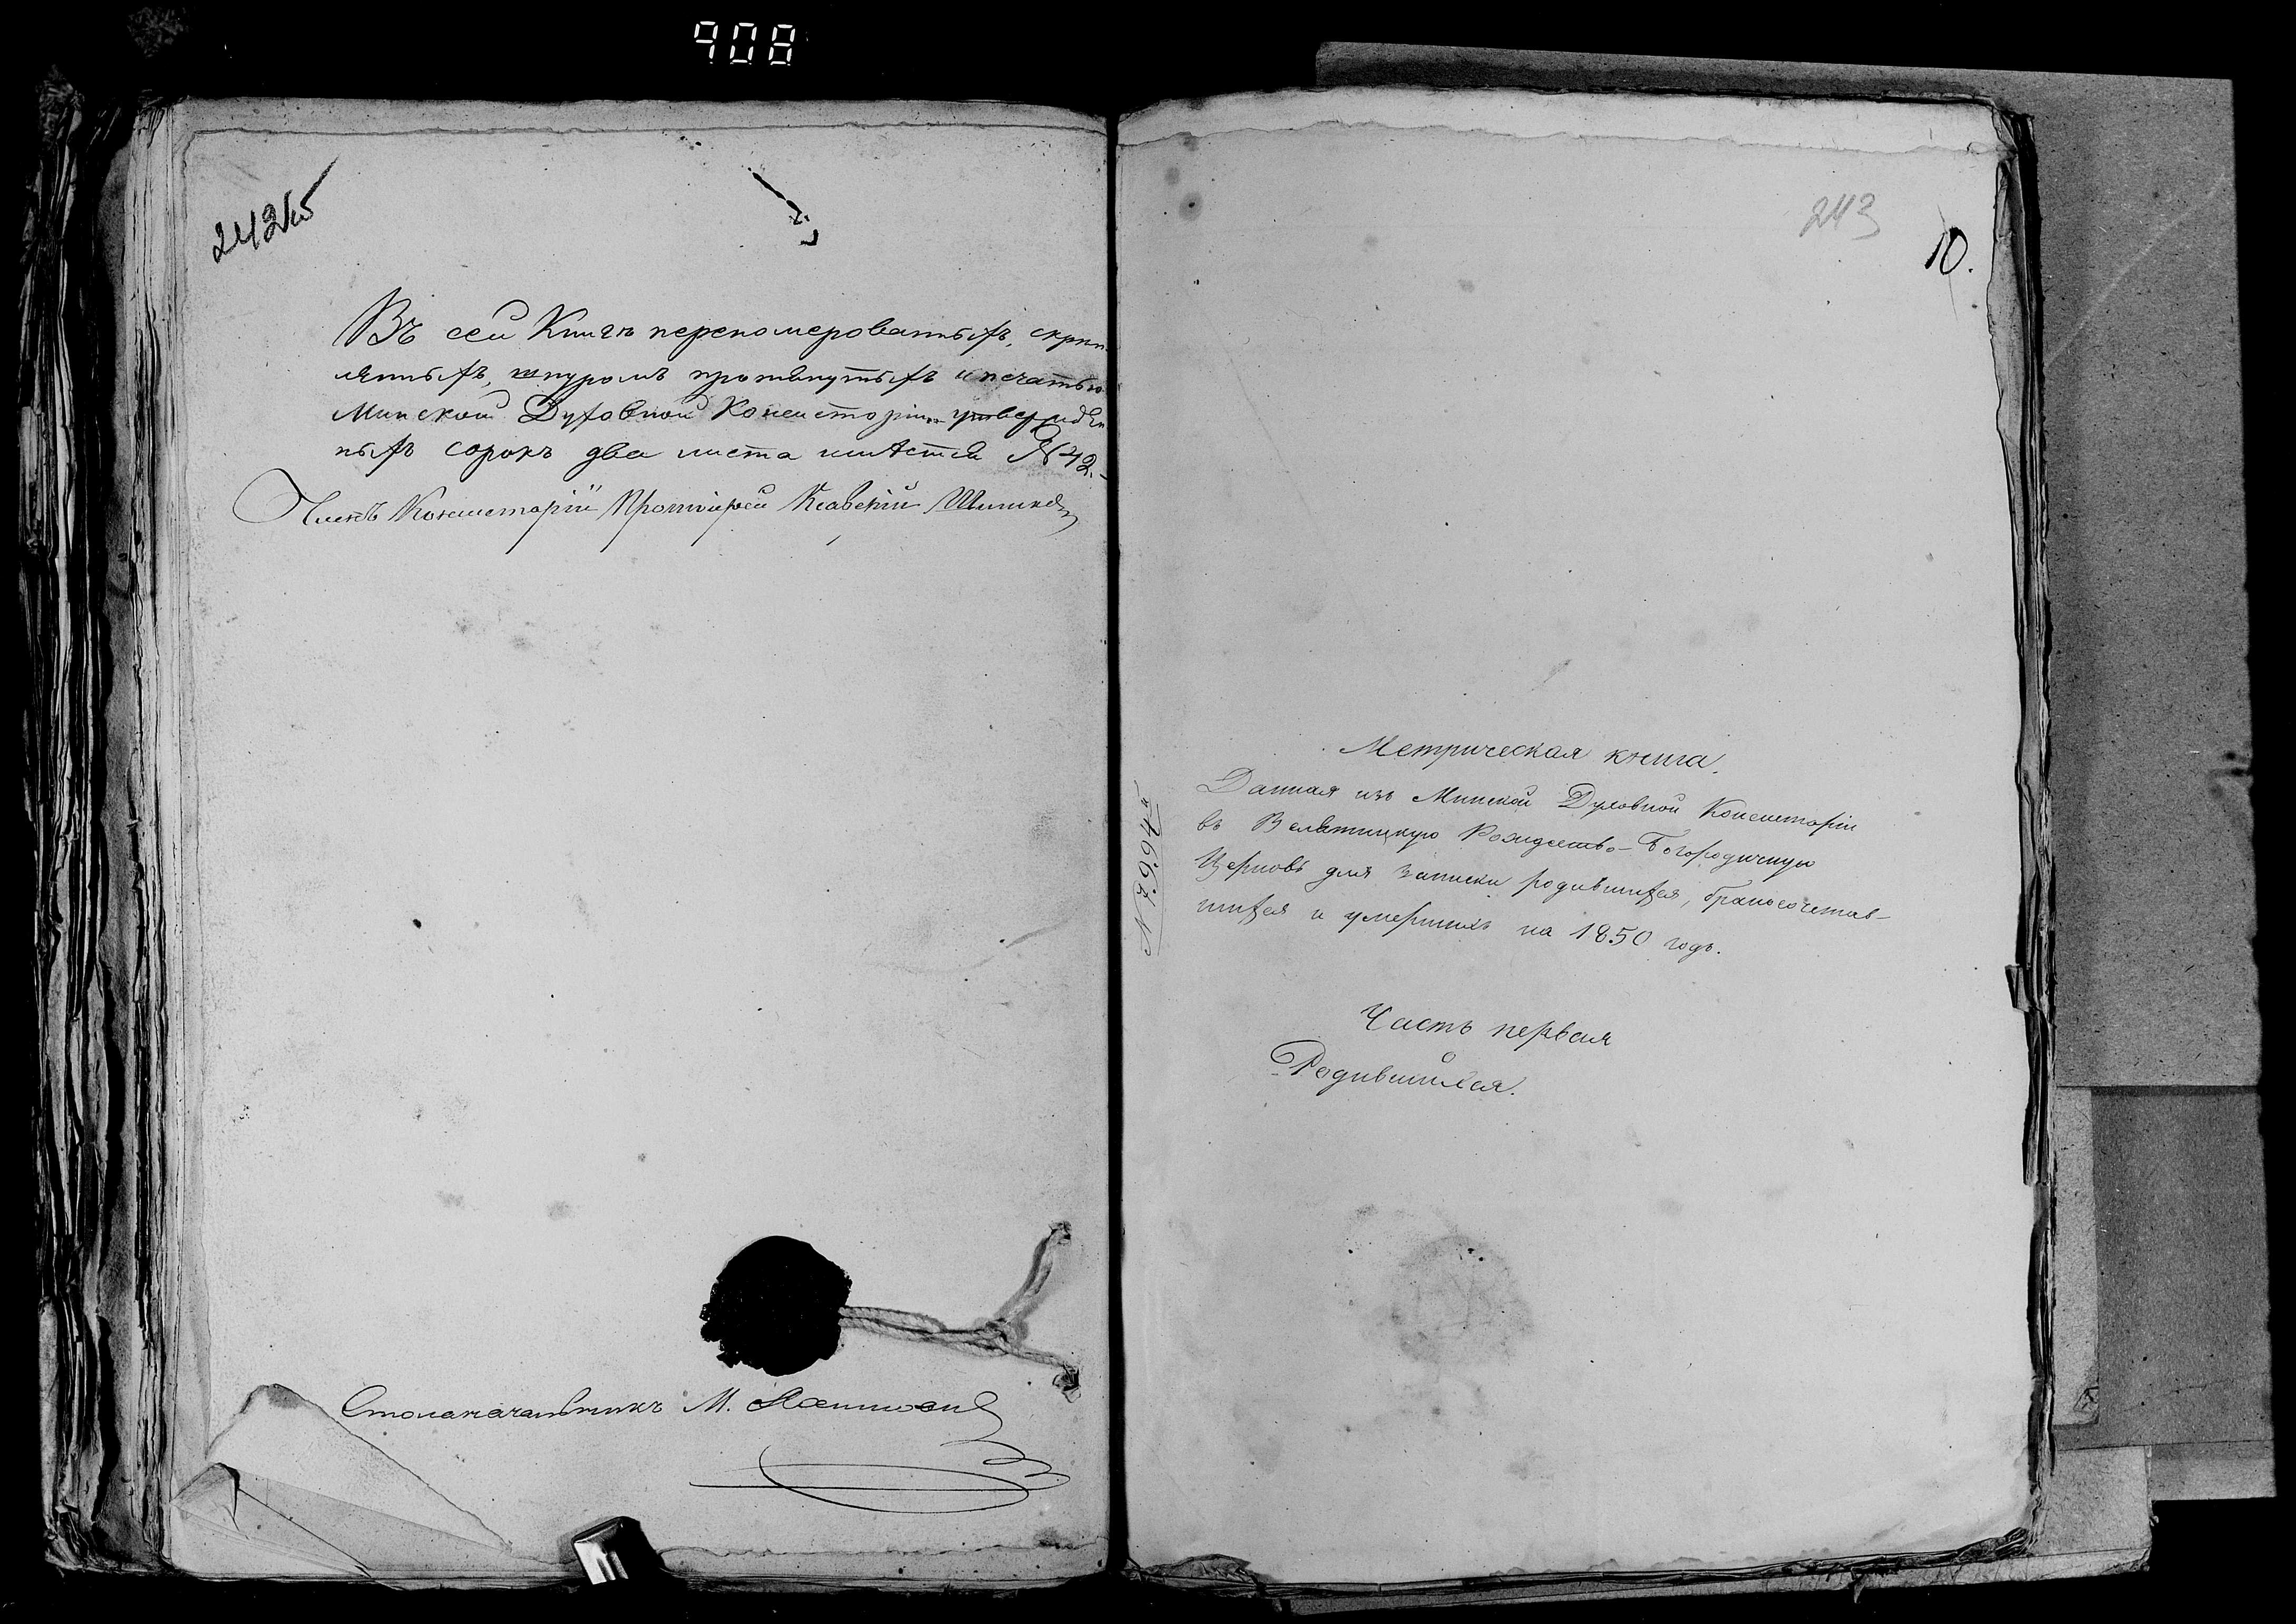 908
242об
Въ сей Книгѣ перенумерованныхъ, скрѣп
ленныхъ, шнуромъ протянутыхъ и печатью
Минской Духовной Консисторіи утвержден
ныхъ сорокъ два листа имѣется № 42.
Членъ Консисторіи Протоіерей
Столоначальникъ М.
243
10.
№ 7994й
Метрическая книга.
Данная изъ Минской Духовной Консисторіи
въ Вельятицкую Рождество-Богородичную
Церковь для записки родившихся, бракосочетав-
шихся и умершихъ на 1850 годъ.
Часть первая
Родившіися.